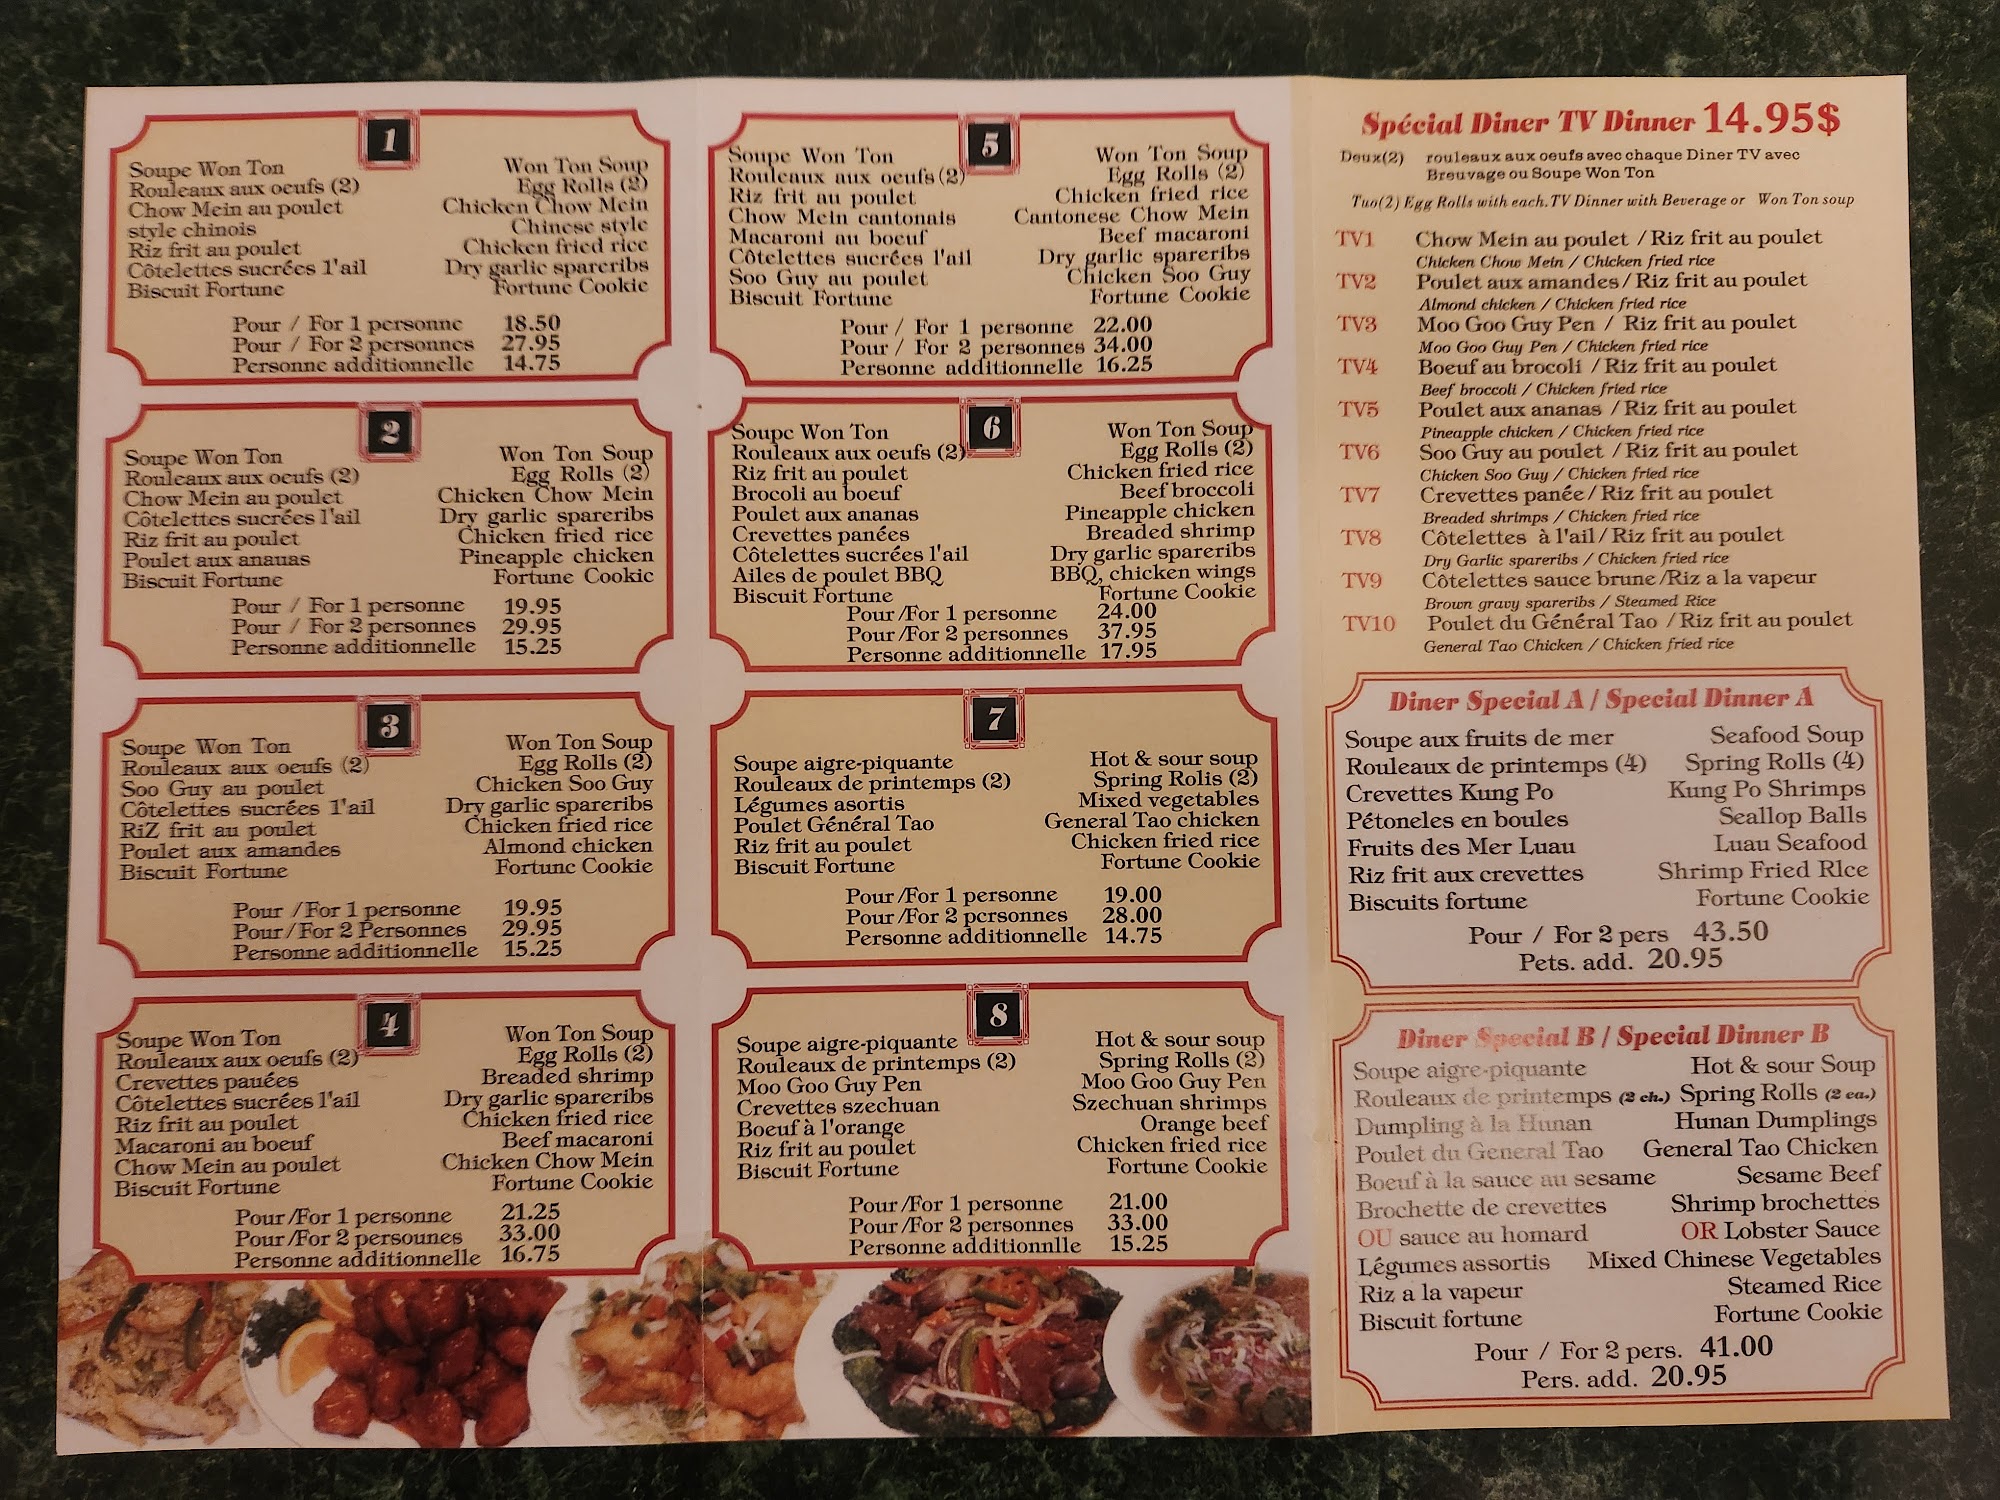 1
Soupe Won Ton Won Ton Soup
Rouleaux aux oeufs (2) Egg Rolls (2)
Chow Mein au poulet Chicken Chow Mein
style chinois Chinese style
Riz frit au poulet Chicken fried rice
Côtelettes sucrées l'ail Dry garlic spareribs
Biscuit Fortune Fortune Cookie
Pour / For 1 personne 18.50
Pour / For 2 personnes 27.95
Personne additionnelle 14.75
2
Soupe Won Ton Won Ton Soup
Rouleaux aux oeufs (2) Egg Rolls (2)
Chow Mein au poulet Chicken Chow Mein
Côtelettes sucrées l'ail Dry garlic spareribs
Riz frit au poulet Chicken fried rice
Poulet aux anauas Pineapple chicken
Biscuit Fortune Fortune Cookie
Pour / For 1 personne 19.95
Pour / For 2 personnes 29.95
Personne additionnelle 15.25
3
Soupe Won Ton Won Ton Soup
Rouleaux aux oeufs (2) Egg Rolls (2)
Soo Guy au poulet Chicken Soo Guy
Côtelettes sucrées l'ail Dry garlic spareribs
RiZ frit au poulet Chicken fried rice
Poulet aux amandes Almond chicken
Biscuit Fortune Fortunc Cookie
Pour / For 1 personne 19.95
Pour / For 2 Personnes 29.95
Personne additionnelle 15.25
4
Soupe Won Ton Won Ton Soup
Rouleaux aux oeufs (2) Egg Rolls (2)
Crevettes pauées Breaded shrimp
Côtelettes sucrées l'ail Dry garlic spareribs
Riz frit au poulet Chicken fried rice
Macaroni au boeuf Beef macaroni
Chow Mein au poulet Chicken Chow Mein
Biscuit Fortune Fortune Cookie
Pour /For 1 personne 21.25
Pour /For 2 persounes 33.00
Personne additionnelle 16.75
5
Soupe Won Ton Won Ton Soup
Rouleaux aux oeufs (2) Egg Rolls (2)
Riz frit au poulet Chicken fried rice
Chow Mein cantonais Cantonese Chow Mein
Macaroni au boeuf Beef macaroni
Côtelettes sucrées l'ail Dry garlic spareribs
Soo Guy au poulet Chicken Soo Guy
Biscuit Fortune Fortune Cookie
Pour / For 1 personne 22.00
Pour / For 2 personnes 34.00
Personne additionnelle 16.25
6
Soupc Won Ton Won Ton Soup
Rouleaux aux oeufs (2) Egg Rolls (2)
Riz frit au poulet Chicken fried rice
Brocoli au boeuf Beef broccoli
Poulet aux ananas Pineapple chicken
Crevettes panées Breaded shrimp
Côtelettes sucrées l'ail Dry garlic spareribs
Ailes de poulet BBQ BBQ, chicken wings
Biscuit Fortune Fortune Cookie
Pour /For 1 personne 24.00
Pour /For 2 personnes 37.95
Personne additionnelle 17.95
7
Soupe aigre-piquante Hot & sour soup
Rouleaux de printemps (2) Spring Rolis (2)
Légumes asortis Mixed vegetables
Poulet Général Tao General Tao chicken
Riz frit au poulet Chicken fried rice
Biscuit Fortune Fortune Cookie
Pour /For 1 personne 19.00
Pour /For 2 pcrsonnes 28.00
Personne additionnelle 14.75
8
Soupe aigre-piquante Hot & sour soup
Rouleaux de printemps (2) Spring Rolls (2)
Moo Goo Guy Pen Moo Goo Guy Pen
Crevettes szechuan Szechuan shrimps
Boeuf à l'orange Orange beef
Riz frit au poulet Chicken fried rice
Biscuit Fortune Fortune Cookie
Pour /For 1 personne 21.00
Pour /For 2 personnes 33.00
Personne additionnlle 15.25
Spécial Diner TV Dinner 14.95$
Deux(2) rouleaux aux oeufs avec chaque Diner TV avec
Breuvage ou Soupe Won Ton
Tuo(2) Egg Rolls with each.TV Dinner with Beverage or Won Ton soup
TV1 Chow Mein au poulet / Riz frit au poulet
Chicken Chow Mein / Chicken fried rice
TV2 Poulet aux amandes/ Riz frit au poulet
Almond chicken / Chicken fried rice
TV3 Moo Goo Guy Pen / Riz frit au poulet
Moo Goo Guy Pen / Chicken fried rice
TV4 Boeuf au brocoli / Riz frit au poulet
Beef broccoli / Chicken fried rice
TV5 Poulet aux ananas / Riz frit au poulet
Pineapple chicken / Chicken fried rice
TV6 Soo Guy au poulet / Riz frit au poulet
Chicken Soo Guy / Chicken fried rice
TV7 Crevettes panée/ Riz frit au poulet
Breaded shrimps / Chicken fried rice
TV8 Côtelettes à l'ail/ Riz frit au poulet
Dry Garlic spareribs / Chicken fried rice
TV9 Côtelettes sauce brune /Riz a la vapeur
Brown gravy spareribs / Steamed Rice
TV10 Poulet du Général Tao / Riz frit au poulet
General Tao Chicken / Chicken fried rice
Diner Special A / Special Dinner A
Soupe aux fruits de mer Seafood Soup
Rouleaux de printemps (4) Spring Rolls (4)
Crevettes Kung Po Kung Po Shrimps
Pétoneles en boules Seallop Balls
Fruits des Mer Luau Luau Seafood
Riz frit aux crevettes Shrimp Fried RIce
Biscuits fortune Fortune Cookie
Pour / For 2 pers 43.50
Pets. add. 20.95
Diner Special B / Special Dinner B
Soupe aigre-piquante Hot & sour Soup
Rouleaux de printemps (2 ch.) Spring Rolls (2 ea.)
Dumpling à la Hunan Hunan Dumplings
Poulet du General Tao General Tao Chicken
Boeuf à la sauce au sesame Sesame Beef
Brochette de crevettes Shrimp brochettes
OU sauce au homard OR Lobster Sauce
Légumes assortis Mixed Chinese Vegetables
Riz a la vapeur Steamed Rice
Biscuit fortune Fortune Cookie
Pour / For 2 pers. 41.00
Pers. add. 20.95